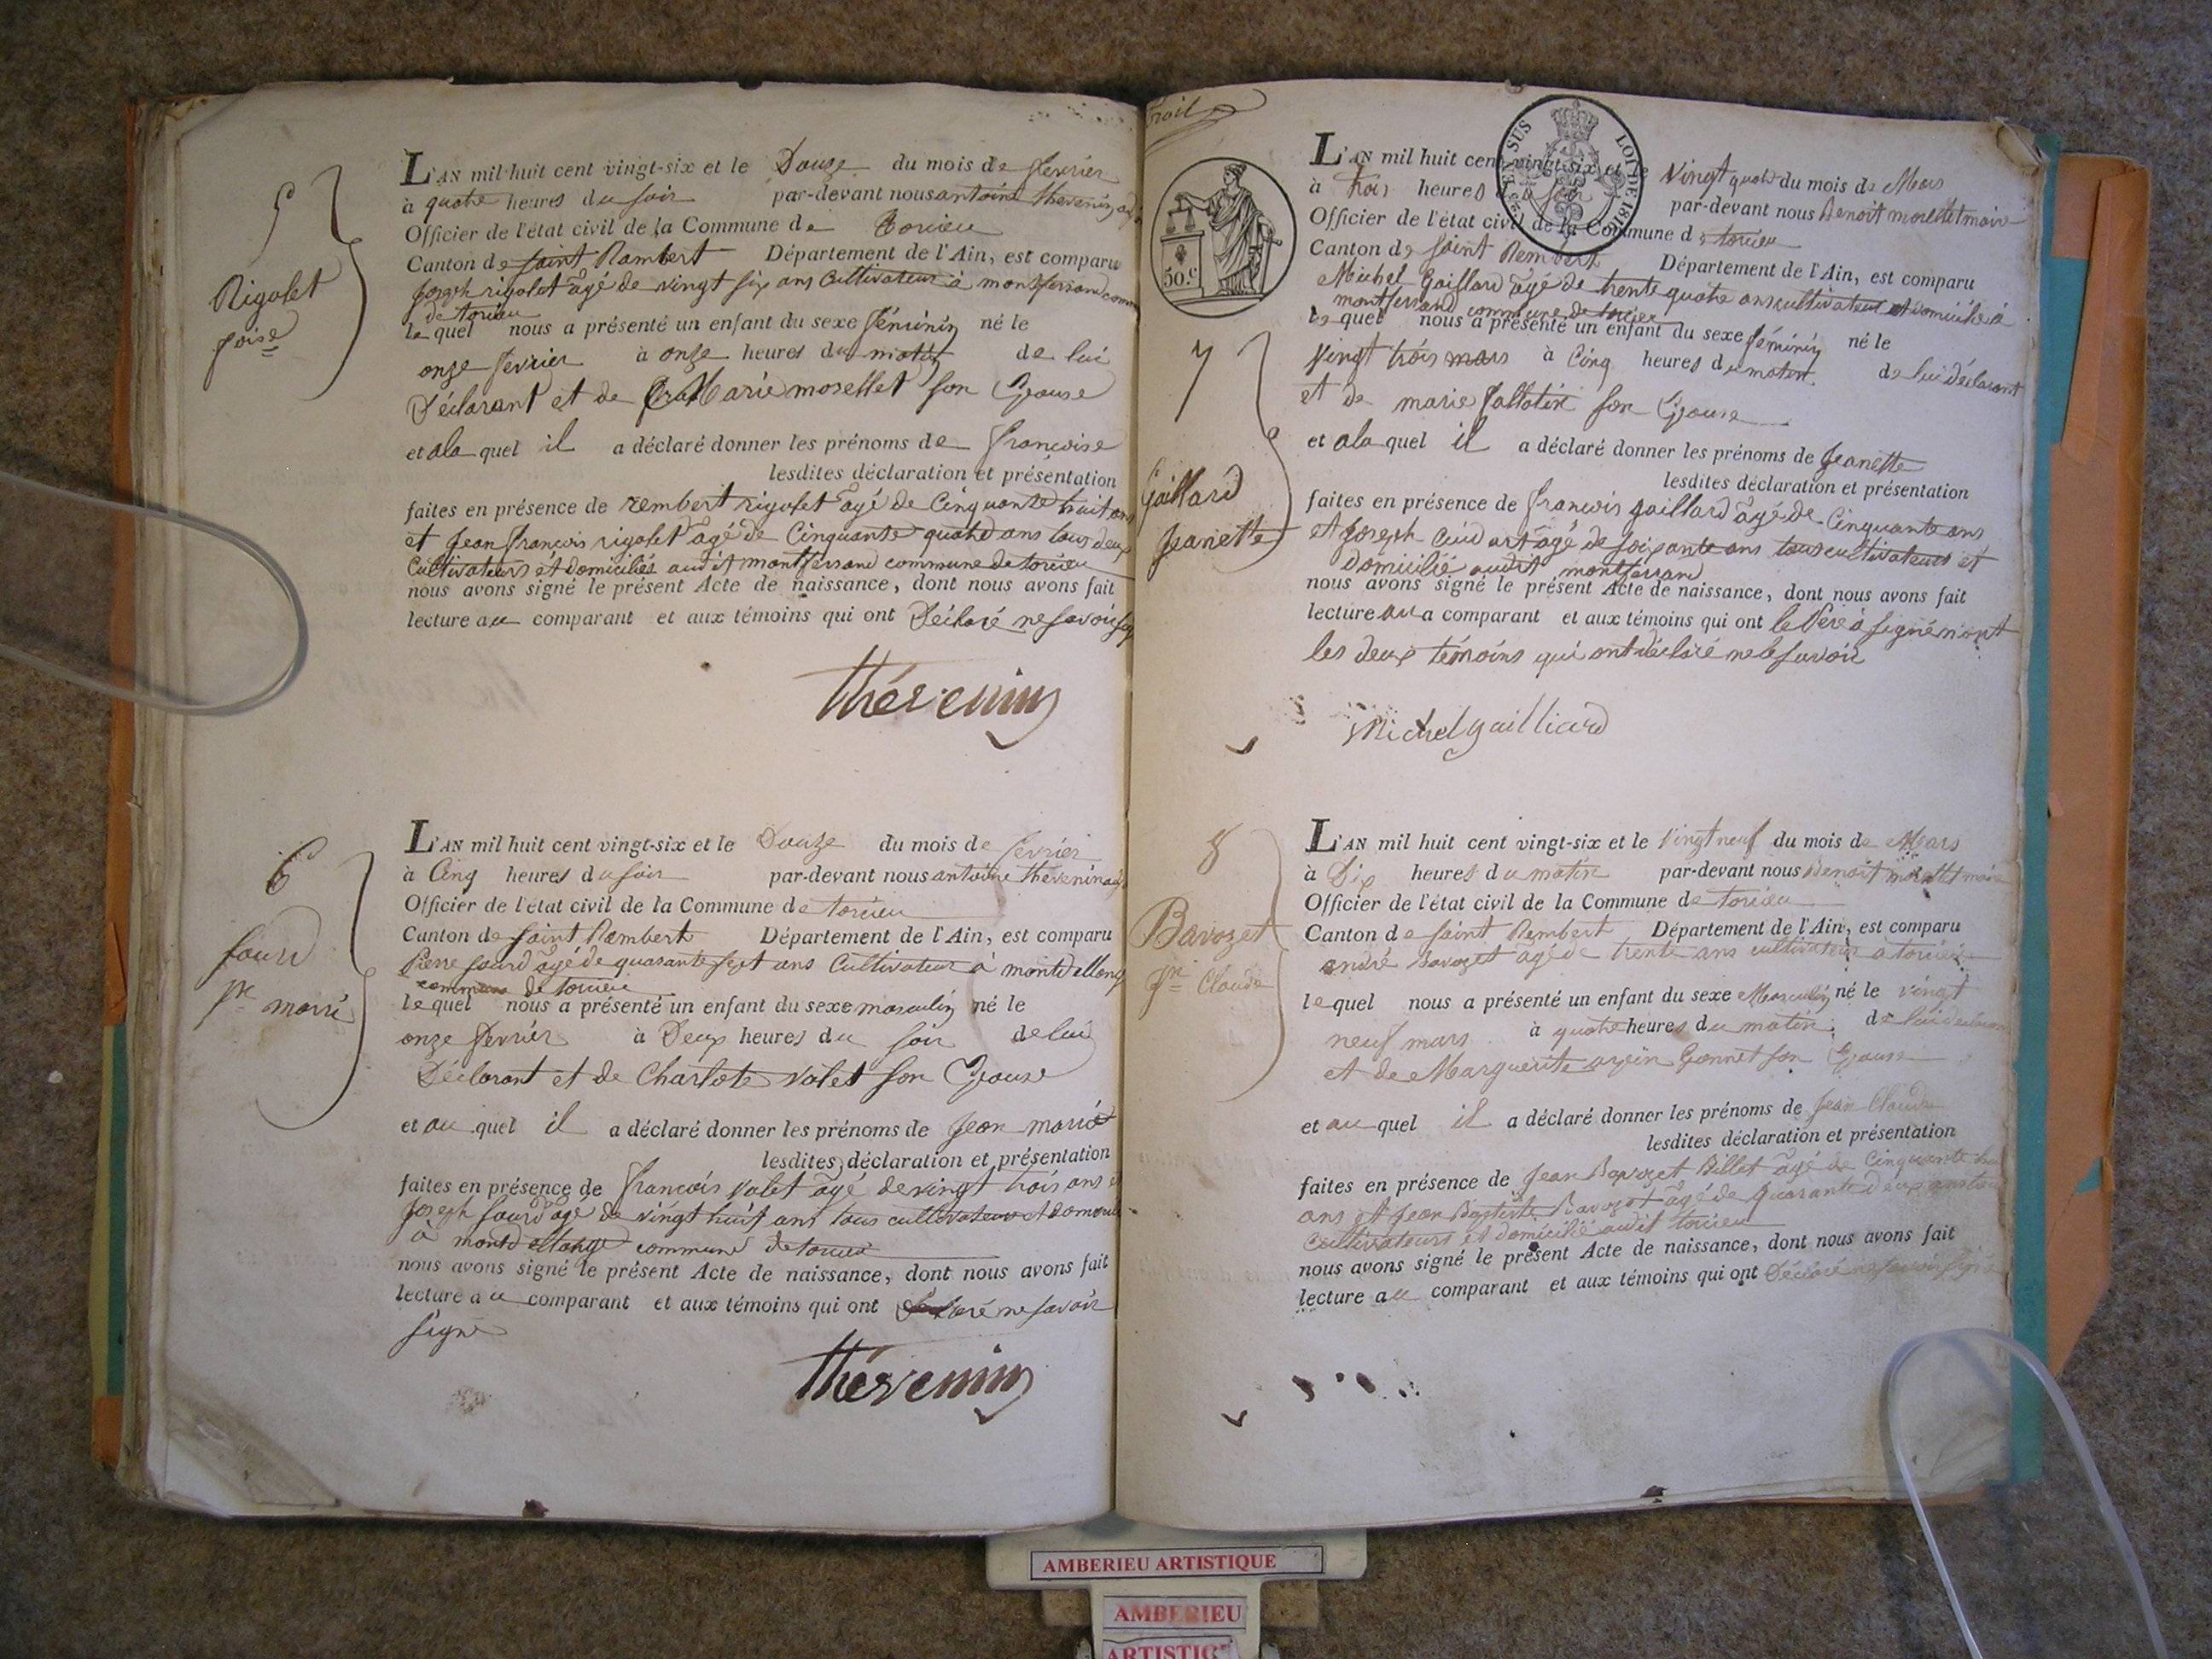 5
Rigolet
çoise
L'AN mil huit cent vingt-six et le Douze du mois de fevrier
à quatre heures du soir par-devant nous antoine thevenin adj
Officier de l'état civil de la Commune de torcieu
Canton de saint Rambert Département de l'Ain, est comparu
Joseph rigolet âgé de vingt six ans Cultivateur à montferrand comm
de torcieu
le quel nous a présenté un enfant du sexe féminin né le
onze fevrier à onze heures du matin de lui
Déclarant et de Marie morellet son Epouse
et a la quel il a déclaré donner les prénoms de francoise
lesdites déclaration et présentation
faites en présence de rembert rigolet âgé de Cinquante huit ans
et Jean francois rigolet âgé de Cinquante quatre ans tous deux
Cultivateurs et domiciliés audit montferrand commune de torcieu
nous avons signé le présent Acte de naissance, dont nous avons fait
lecture au comparant et aux témoins qui ont Déclaré ne savoir sig
thévenin
6
sourd
jn marie
L'AN mil huit cent vingt-six et le Douze du mois de fevrier
à Cinq heures du soir par-devant nous antoine thevenin adj
Officier de l'état civil de la Commune de torcieu
Canton de saint Rambert Département de l'Ain, est comparu
Pierre sourd âgé de quarante sept ans Cultivateur à
commune de torcieu
le quel nous a présenté un enfant du sexe masculin né le
onze fevrier à Deux heures du soir de lui
Déclarant et de Charlote valet son Epouse
et au quel il a déclaré donner les prénoms de Jean marie
lesdites déclaration et présentation
faites en présence de francois valet âgé de vingt trois ans et
Joseph sourd âgé de vingt huit ans tous cultivateurs et domicilié
à commune de torcieu
nous avons signé le présent Acte de naissance, dont nous avons fait
lecture au comparant et aux témoins qui ont Déclaré ne savoir
signe
thévenin
50.c
TIMBRE EN SUS LOI DE 1816
7
Gaillard
Jeanette
L'AN mil huit cent vingt-six et le vingt quatre du mois de Mars
à trois heures du soir par-devant nous Benoit morellet maire
Officier de l'état civil de la Commune de torcieu
Canton de saint Rembert Département de l'Ain, est comparu
Michel Gaillard âgé de trente quatre ans cultivateur et domicilié à
montferrand commune de torcieu
le quel nous a présenté un enfant du sexe féminin né le
vingt trois mars à Cinq heures du matin de lui déclarant
et de marie son Epouse
et a la quel il a déclaré donner les prénoms de Jeanette
lesdites déclaration et présentation
faites en présence de francois gaillard âgé de Cinquante ans
et Joseph âgé de soixante ans tous cultivateurs et
domicilié audit montferrand
nous avons signé le présent Acte de naissance, dont nous avons fait
lecture au comparant et aux témoins qui ont le Père à signé non
les deux témoins qui ont déclaré ne le savoir
Michel gailliard
8
Bavozet
jn Claude
L'AN mil huit cent vingt-six et le vingt neuf du mois de Mars
à Dix heures du matin par-devant nous Benoit morellet maire
Officier de l'état civil de la Commune de torcieu
Canton de saint Rembert Département de l'Ain, est comparu
andré Bavozet âgé de trente ans cultivateur a torcieu
le quel nous a présenté un enfant du sexe Masculin né le vingt
neuf mars à quatre heures du matin de lui déclarant
et de Marguerite Gonnet son Epouse
et au quel il a déclaré donner les prénoms de Jean Claude
lesdites déclaration et présentation
faites en présence de Jean Bavozet Billet âgé de Cinquante
ans et Jean Baptiste Bavozet âgé de quarante deux ans
Cultivateurs et domicilié audit torcieu
nous avons signé le présent Acte de naissance, dont nous avons fait
lecture au comparant et aux témoins qui ont Déclaré ne savoir signe
AMBERIEU ARTISTIQUE
AMBERIEU
ARTISTIQ